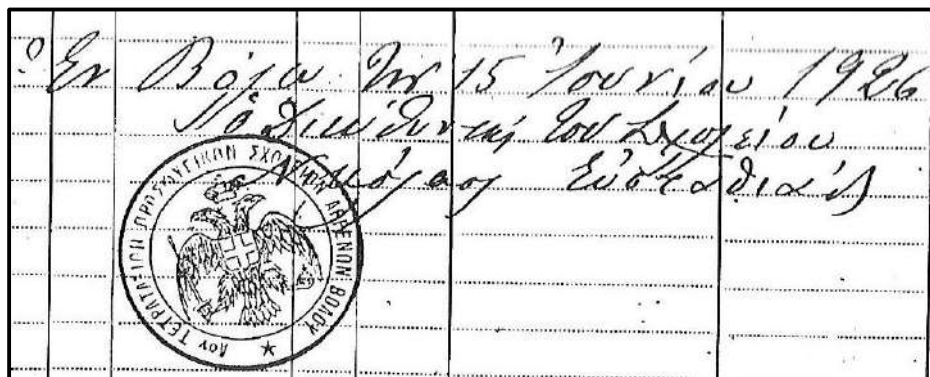 Ἐν Βόλῳ τῇ 15 Ἰουνίου 1926
Ὁ Διευθυντής τοῦ Σχολείου
Νικόλαος Εὐσταθιάδης
ΤΕΤΡΑΤΑΞΙΟΝ ΠΡΟΣΦΥΓΙΚΟΝ ΣΧΟΛΕΙΟΝ ΑΡΡΕΝΩΝ ΒΟΛΟΥ